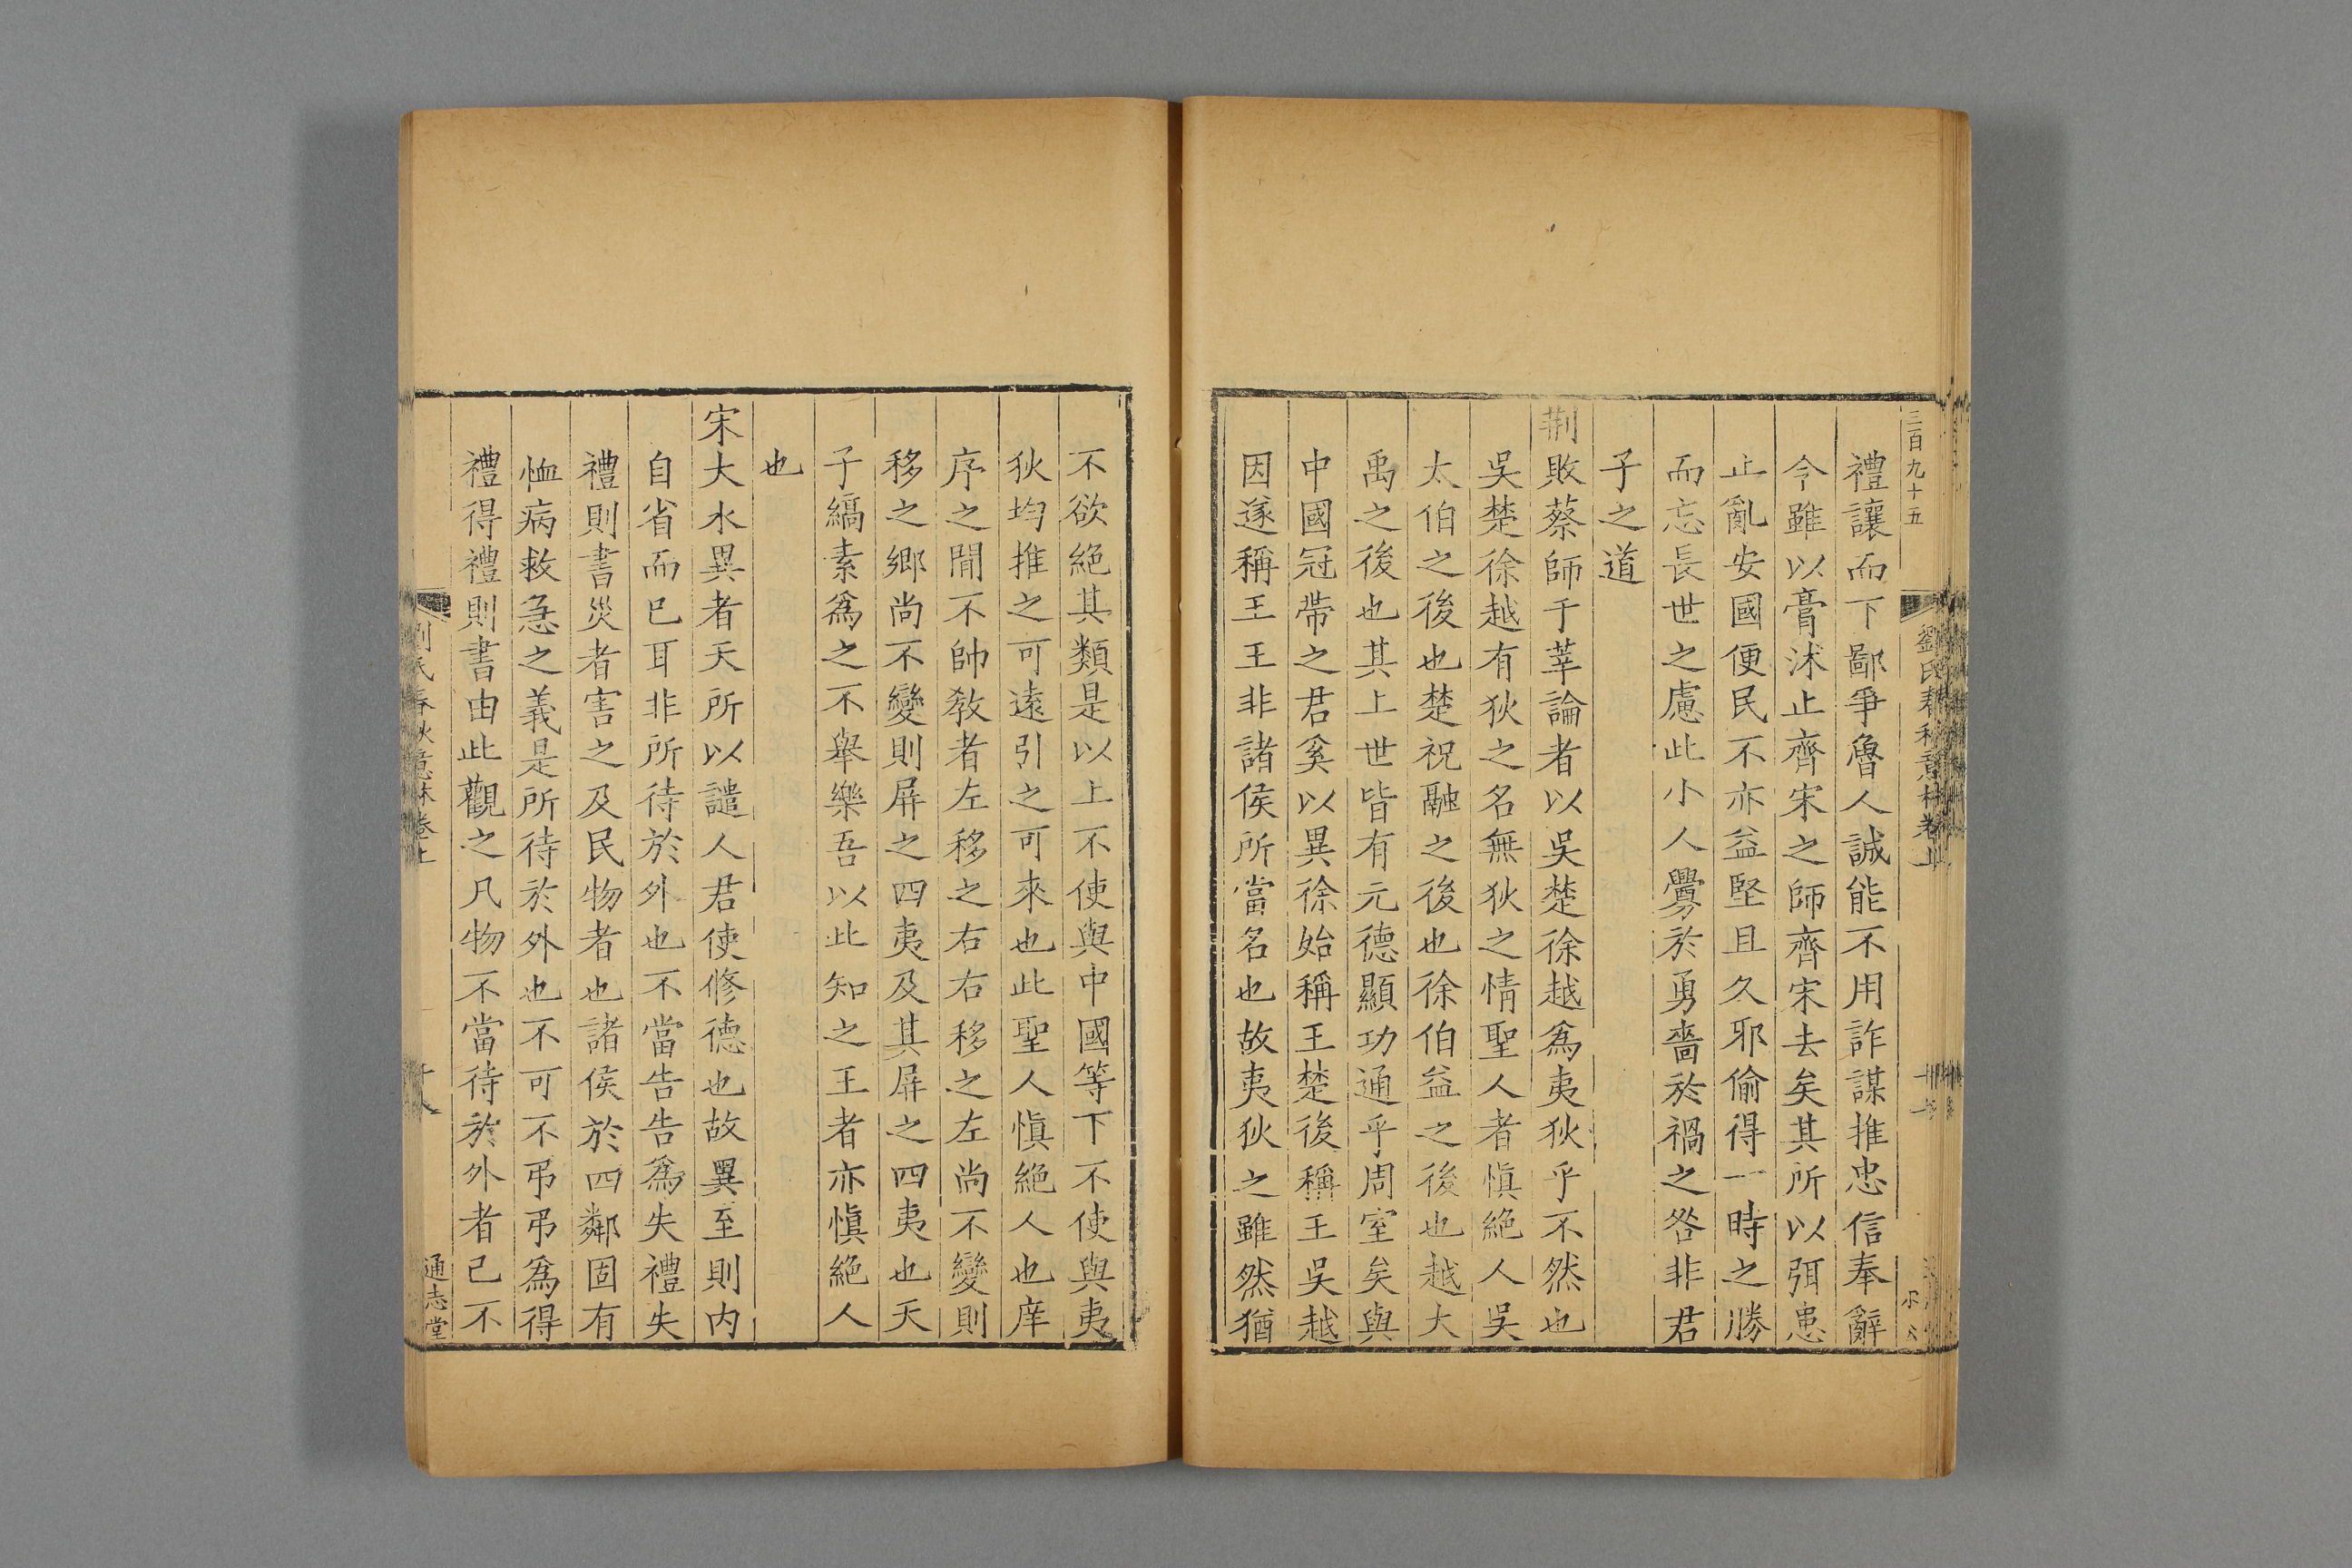 三百九十五
禮讓而下鄙爭魯人誠能不用詐謀推忠信奉辭
令雖以膏沐止齊宋之師齊宋去矣其所以弭患
止亂安國便民不亦益堅且久邪偷得一時之勝
而忘長世之慮此小人釁於勇嗇於禍之咎非君
子之道
荆敗蔡師于莘論者以吳楚徐越爲夷狄乎不然也
吳楚徐越有狄之名無狄之情聖人者愼絶人吳
太伯之後也楚祝融之後也徐伯益之後也越大
禹之後也其上世皆有元德顯功通乎周室矣與
中國冠帶之君奚以異徐始稱王楚後稱王吳越
因遂稱王王非諸侯所當名也故夷狄之雖然猶
不欲絶其類是以上不使與中國等下不使與夷
狄均推之可遠引之可來也此聖人愼絶人也庠
序之閒不帥敎者左移之右右移之左尚不變則
移之鄉尚不變則屏之四夷及其屏之四夷也天
子縞素爲之不舉樂吾以此知之王者亦愼絶人
也
宋大水異者天所以譴人君使修德也故異至則内
自省而已耳非所待於外也不當告告爲失禮失
禮則書災者害之及民物者也諸侯於四鄰固有
恤病救急之義是所待於外也不可不弔弔爲得
禮得禮則書由此觀之凡物不當待於外者己不
劉氏春秋意林卷上
通志堂